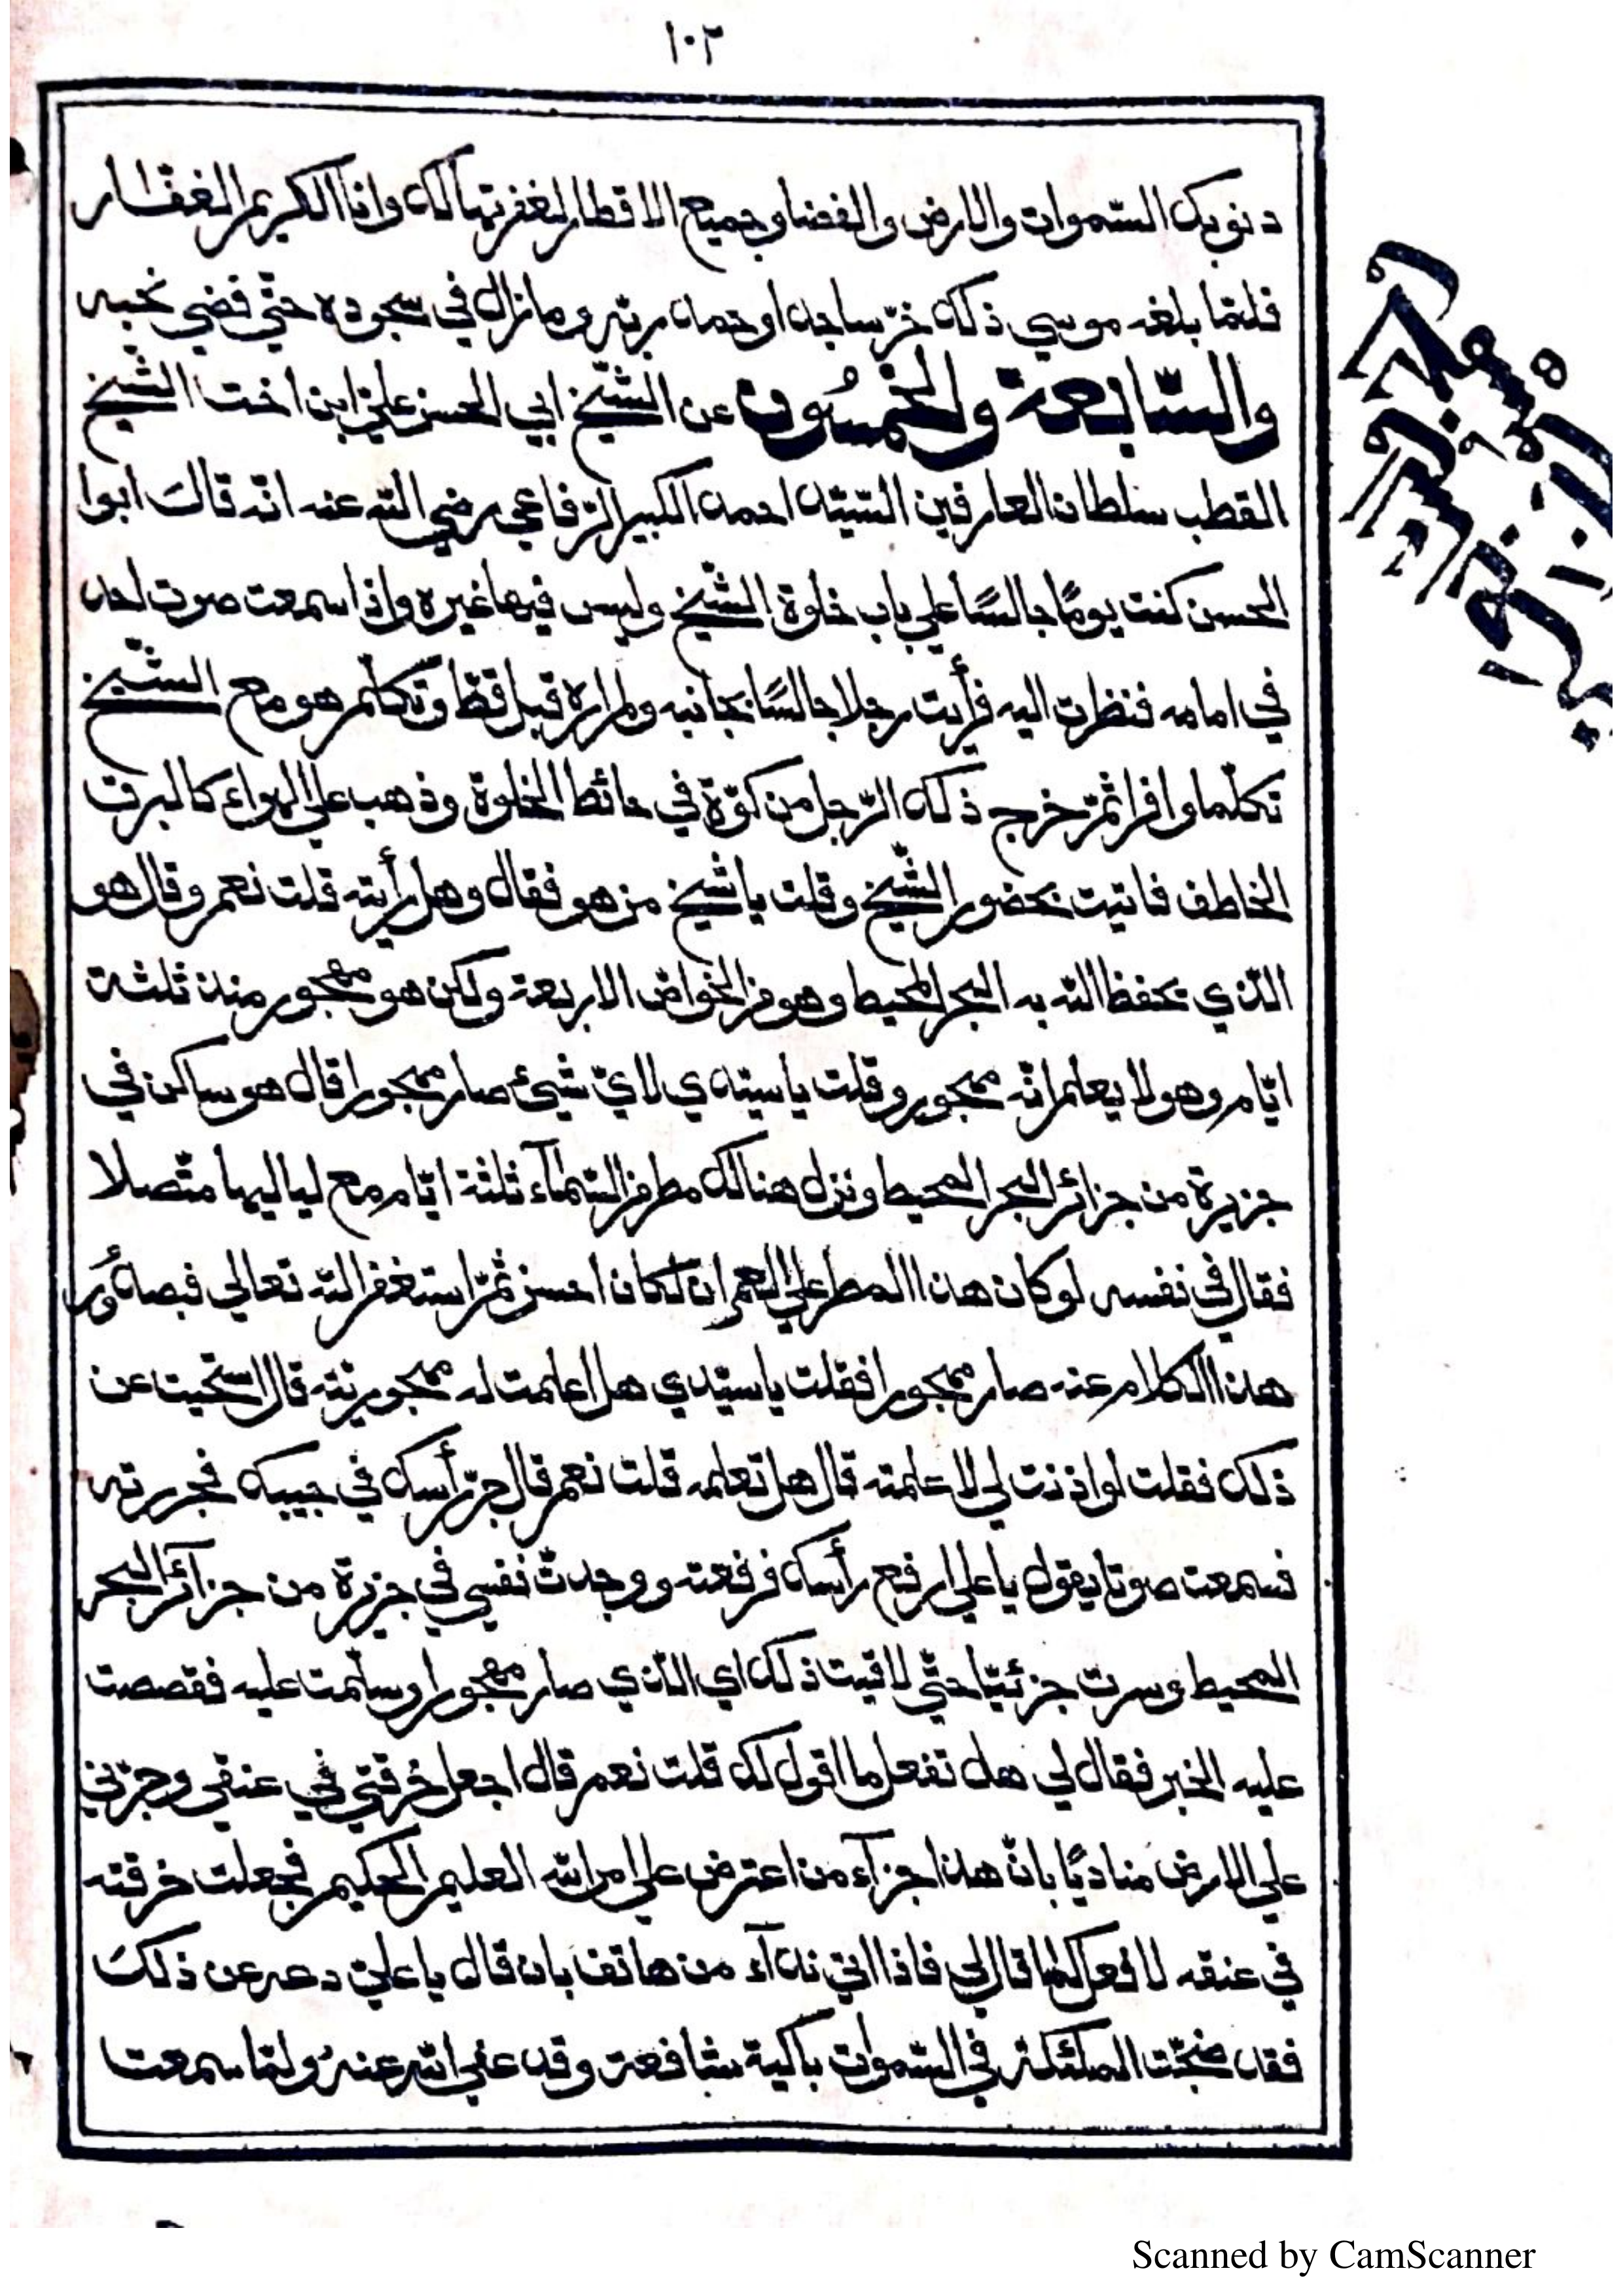 ١٠٢
دنوبك السّموات والارض والفضا وجميع الاقطار لغفرتها لك وانا الكريم الغفّار
فلمّا بلغه موسي ذلك خرّ ساجدا وحمد ربّه وما زال في سجوده حتّي قضي نحبه
والسّابعة والخمسُون عن الشّيخ ابي الحسن عليّ ابن اخت الشّيخ
القطب سلطان العارفين السّيّد احمد الكبير الرّفاعي رضي اللّه عنه انّه قالَ ابوا
الحسن كنت يومًا جالسًا علي باب خلوة الشّيخ وليس فيها غيره واذا سمعت صوت احد
في امامه فنظرت اليه فرأيت رجلا جالسًا بجانبه ولم اره قبل قطّ وتكلّم هو مع الشّيخ
تكلّما وافرا ثمّ خرج ذلك الرّجل من كوّة في حائط الخلوة وذهب علي الهواء كالبرق
الخاطف فاتيت بحضور الشّيخ وقلت يا شيخ من هو فقال وهل رأيته قلت نعم وقال هو
الّذي يحفظ اللّه به البحر المحيط وهو من الخواصّ الاربعة ولكن هو مهجور منذ ثلثة
ايّام وهو لا يعلم انّه مهجور وقلت يا سيّدي لايّ شيئ صار مهجورا قال هو ساكن في
جزيرة من جزائر البحر المحيط ونزل هنالك مطر من السّمآء ثلثة ايّام مع لياليها متّصلا
فقال في نفسه لو كان هذا المطر علي العمران لكان احسن ثمّ استغفر اللّه تعالي فبصدُور
هذا الكلام عنه صار مهجورا فقلت يا سيّدي هل اعلمت له مهجوريّته قال استحيت عن
ذلك فقلت لو اذنت لي لاعلمته قال هل تعلمه قلت نعم قال جرّ رأسك في جيبك فجررته
فسمعت صوتا يقول يا علي ارفع رأسك فرفعته ووجدت نفسي في جزيرة من جزآئر البحر
المحيط وسرت جزئيّا حتّي لاقيت ذلك اي الّذي صار مهجورا وسلّمت عليه فقصصت
عليه الخبر فقال لي هل تفعل ما اقول لك قلت نعم قال اجعل خرقتي في عنقي وجرّني
علي الارض مناديًا بانّ هذا جزآء من اعترض علي امر اللّه العليم الحكيم فجعلت خرقته
في عنقه لافعل كما قال لي فاذا اتي ندآء من هاتف بان قال يا عليّ دعه عن ذلكَ
فقد ضجّت الملئكة في السّموات باكية شافعة وقد عفي اللّه عنهُ ولمّا سمعت
Scanned by CamScanner